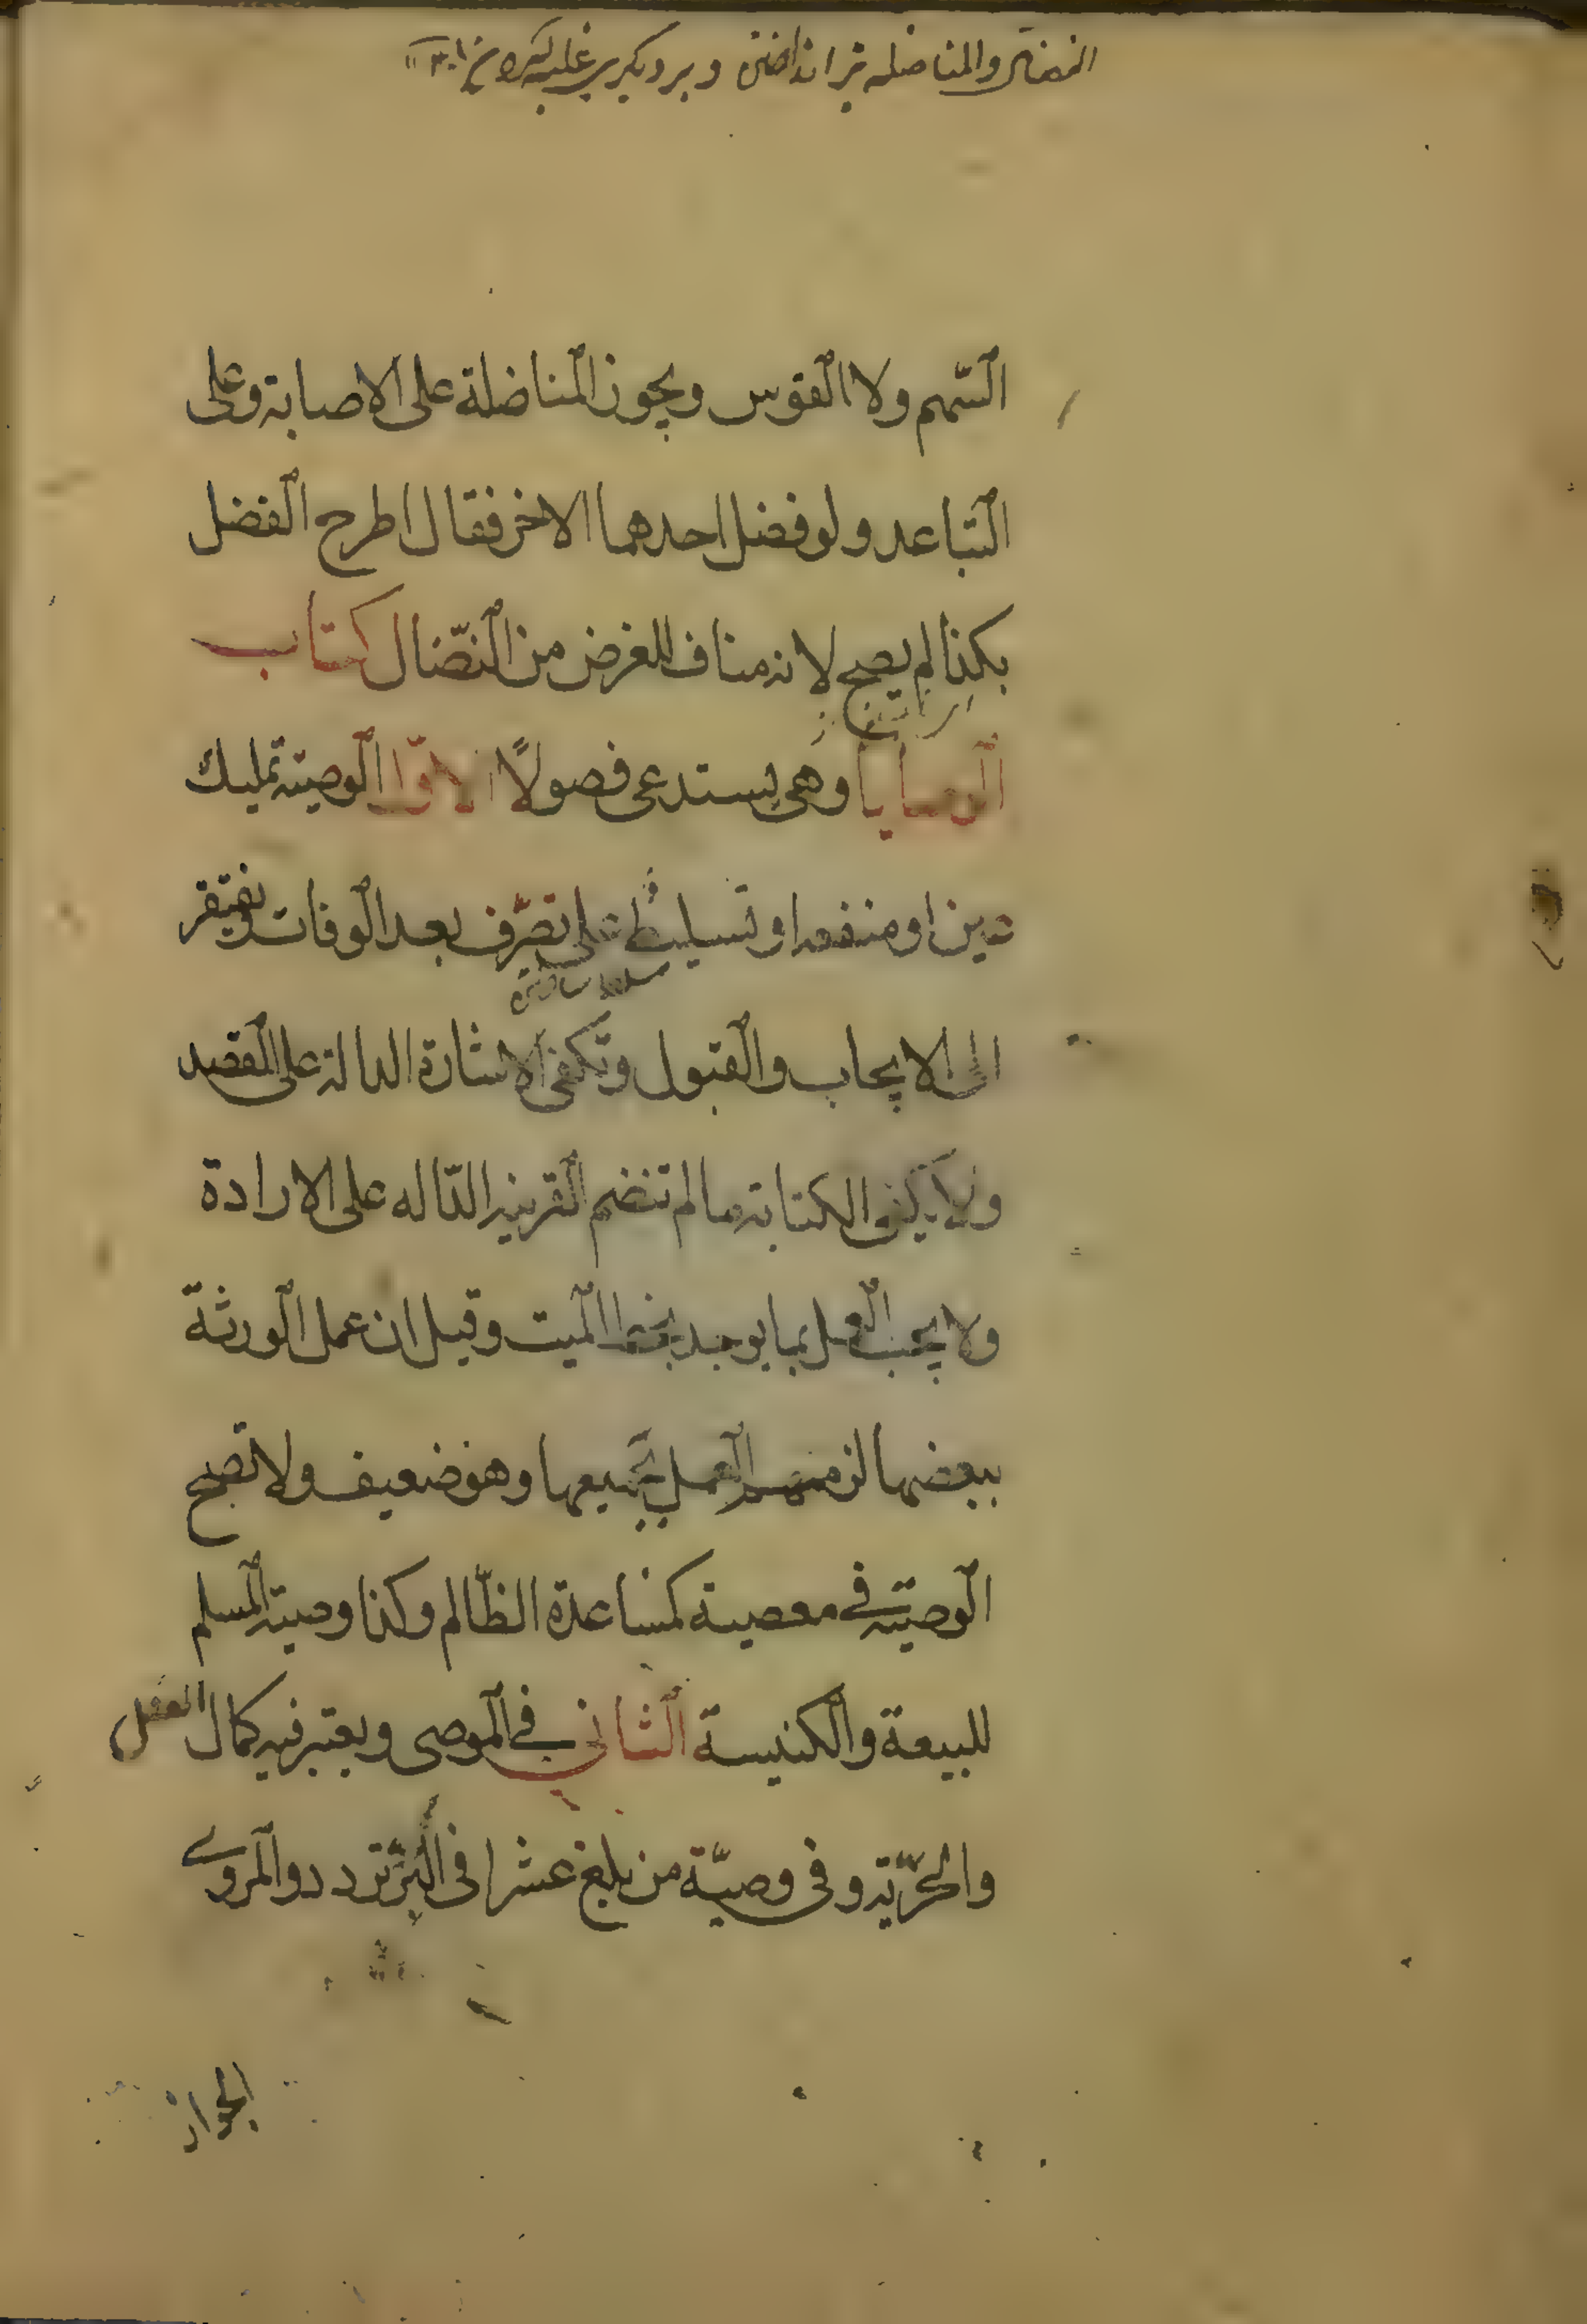 النضال والمناضلة تیر انداختن و بر دیگری غلبه کردن
السّهم ولا القوس ويجوز المناضلة على الاصابة وعلى
التباعد ولو فضل احدهما الاخر فقال اطرح الفضل
بكذا لم يصح لانه مناف للغرض من النضّال كتاب
الوصايا وهى يستدعى فصولًا الاوّل الوصيّة تمليك
عين او منفعه او تسليط على تصرّف بعد الوفات ويفتقر
الى الايجاب والقبول وتكفى الاشارة الدالة على القصد
ولا يكفى الكتابة ما لم تنضم القرينه الدّاله على الارادة
ولا يجب العمل بما يوجد بخط الميت وقيل ان عمل الورثة
ببعضها لزمهم العمل بجميعها وهو ضعيف ولا تصح
الوصيّة فى معصية كمساعدة الظّالم وكذا وصيّة المسلم
للبيعة والكنيسة الثانى فى الموصى ويعتبر فيه كمال العقل
والحرّيّة وفى وصيّة من بلغ عشرا فى البرّ تردد والمروى
الجواز